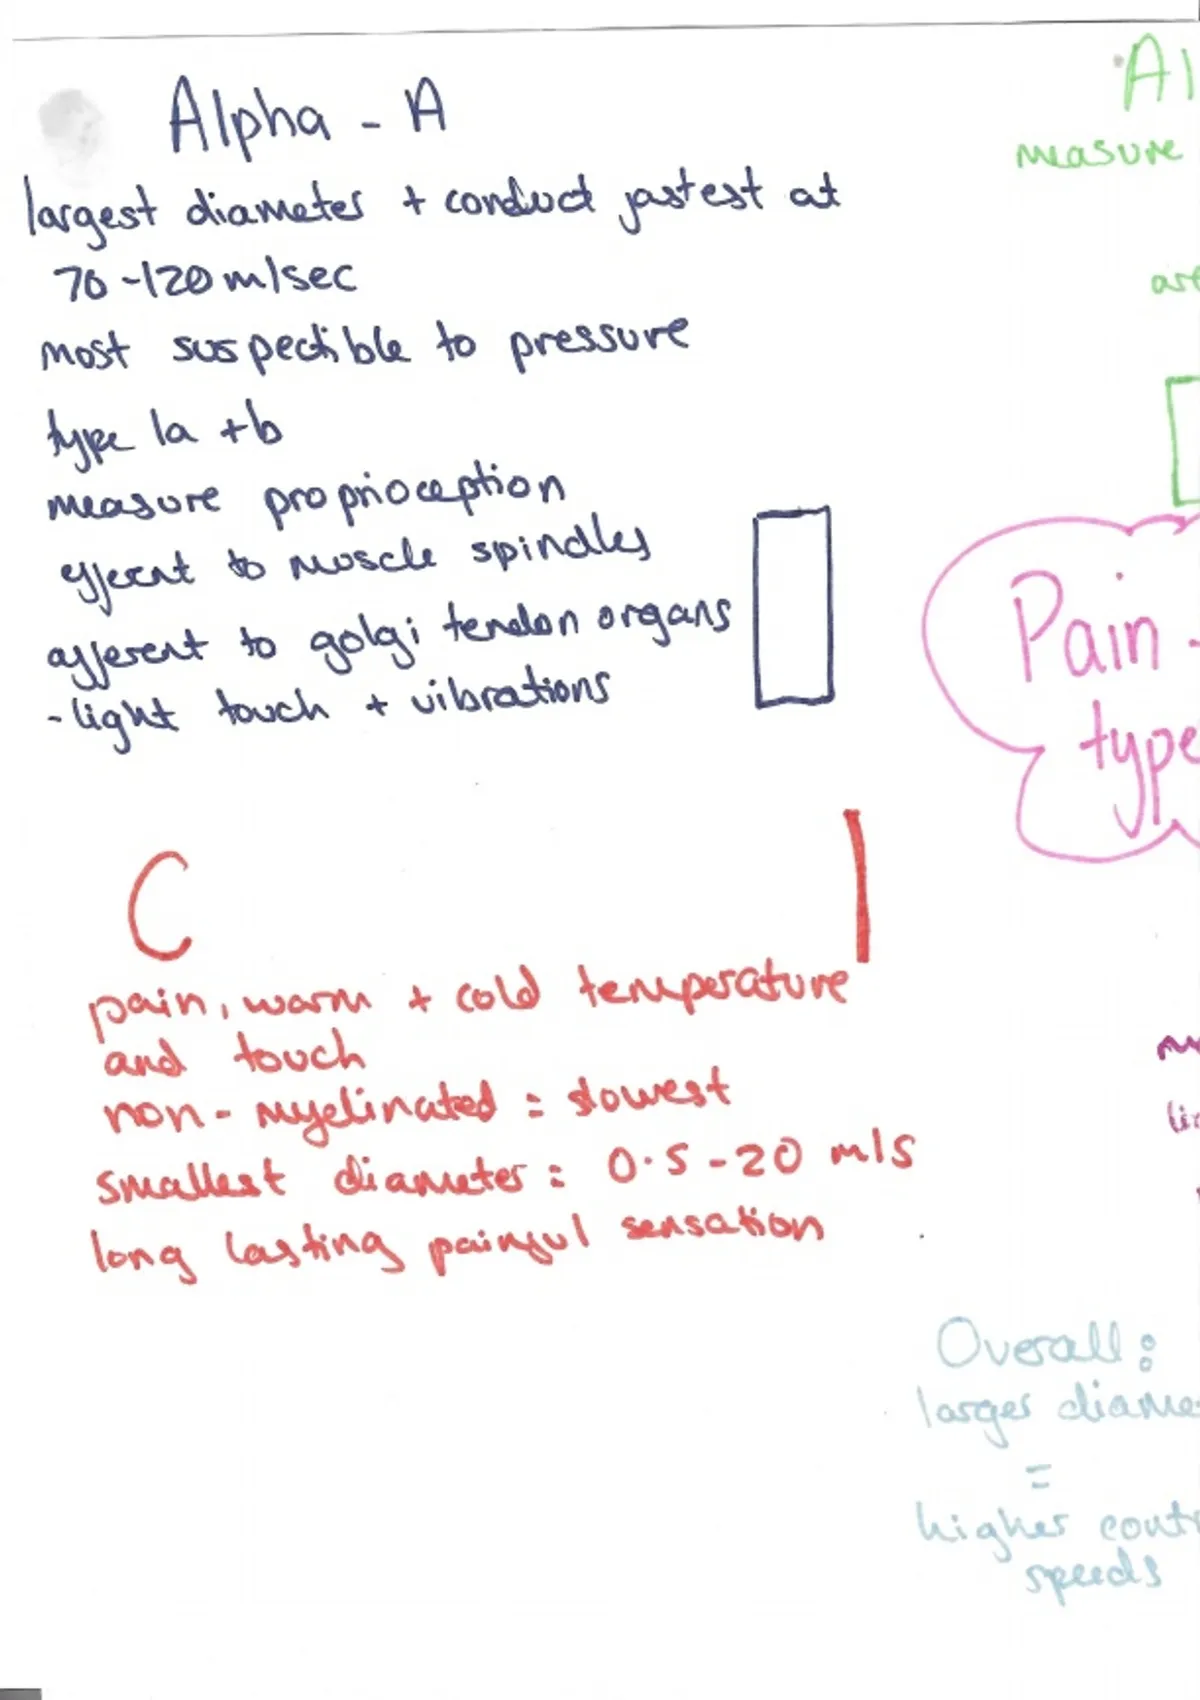 Alpha - A
largest diameter + conduct fastest at
70-120 m/sec
most suspectible to pressure
type 1a + b
measure proprioception
efferent to muscle spindles
afferent to golgi tendon organs
- light touch + vibrations
C
pain, warm + cold temperature
and touch
non-myelinated = slowest
smallest diameter = 0.5-20 m/s
long lasting painful sensation
Al
measure
are
Pain -
type
Overall:
larger diame
=
higher cont
speeds